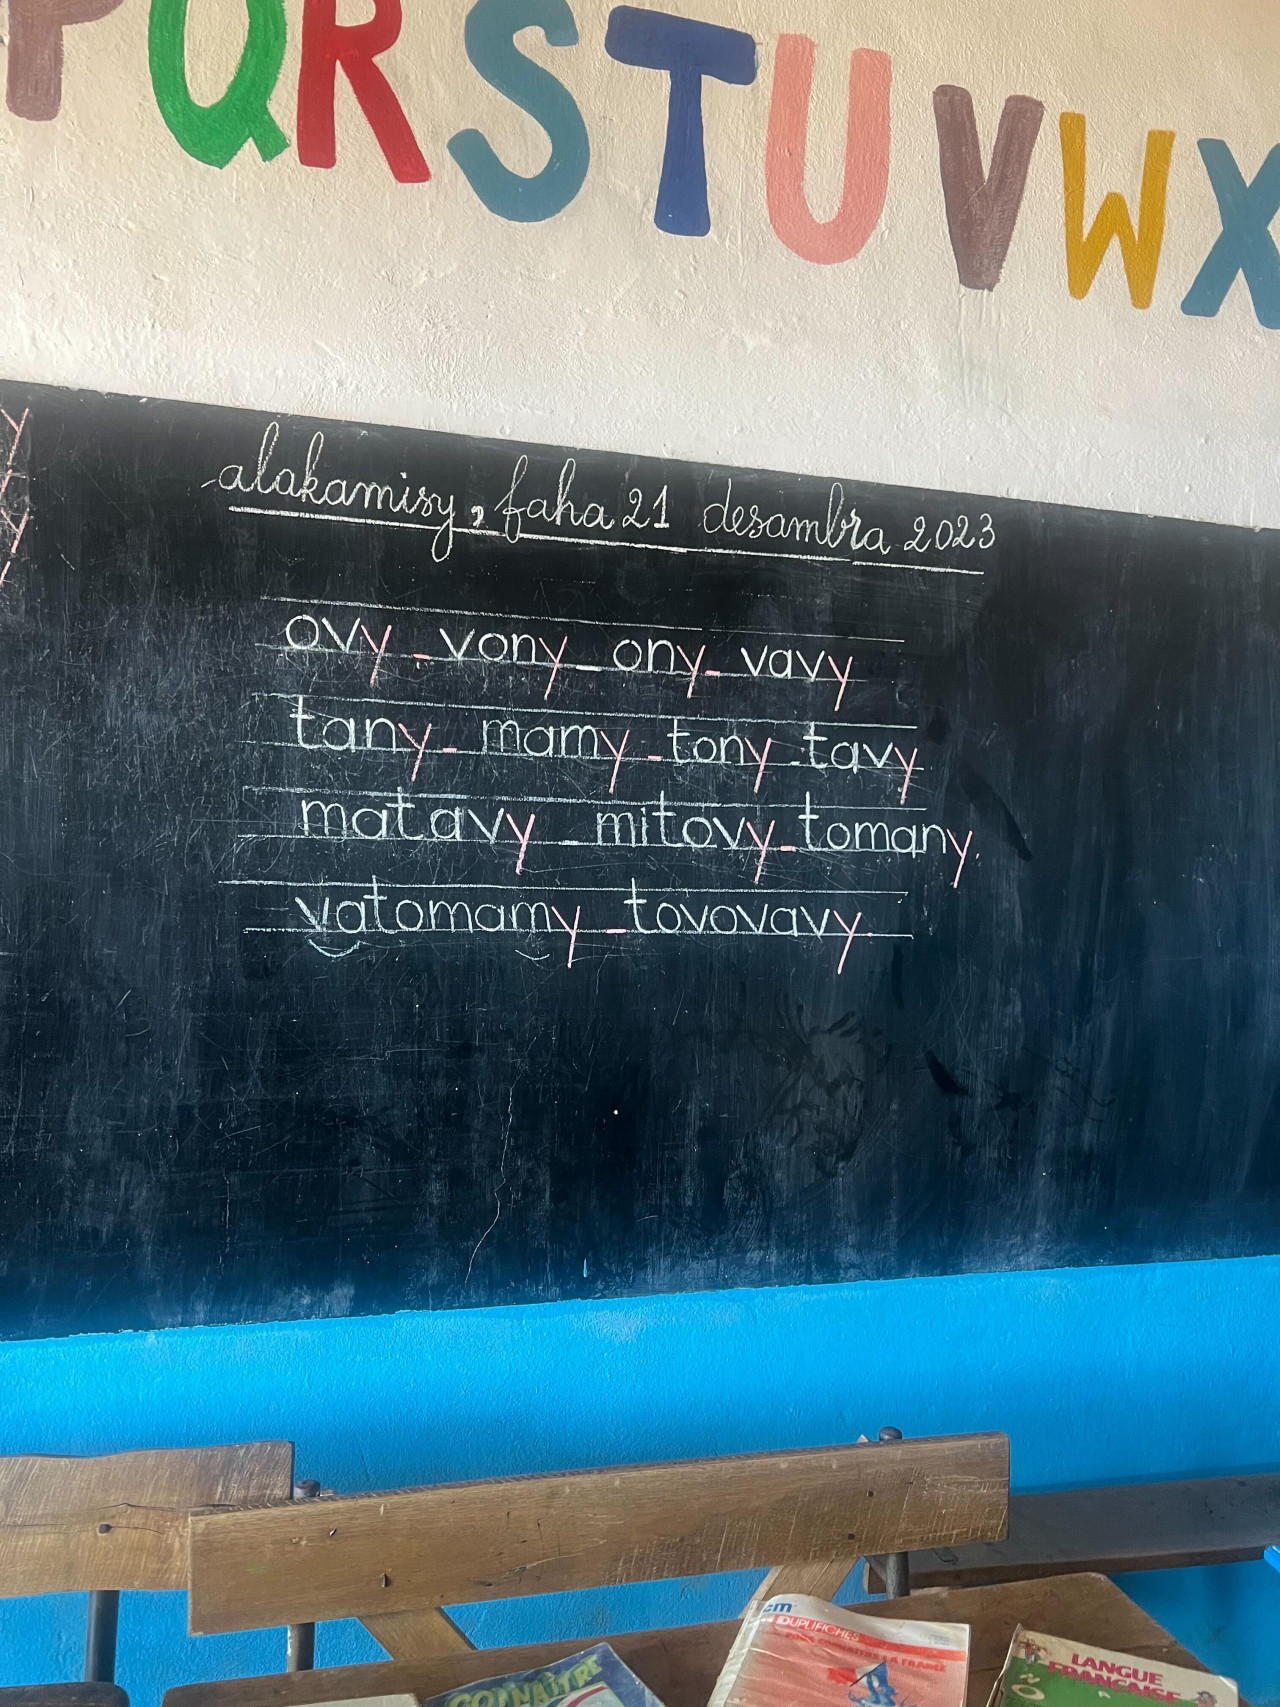 P Q R S T U V W X
alakamisy, faha 21 desambra 2023
ovy - vony - ony - vavy
tany - mamy - tony - tavy
matavy - mitovy - tomany.
vatomamy - tovovavy.
CONNAÎTRE
cm
DUPLIFICHES
LA FRANCE
LANGUE
FRANÇAISE